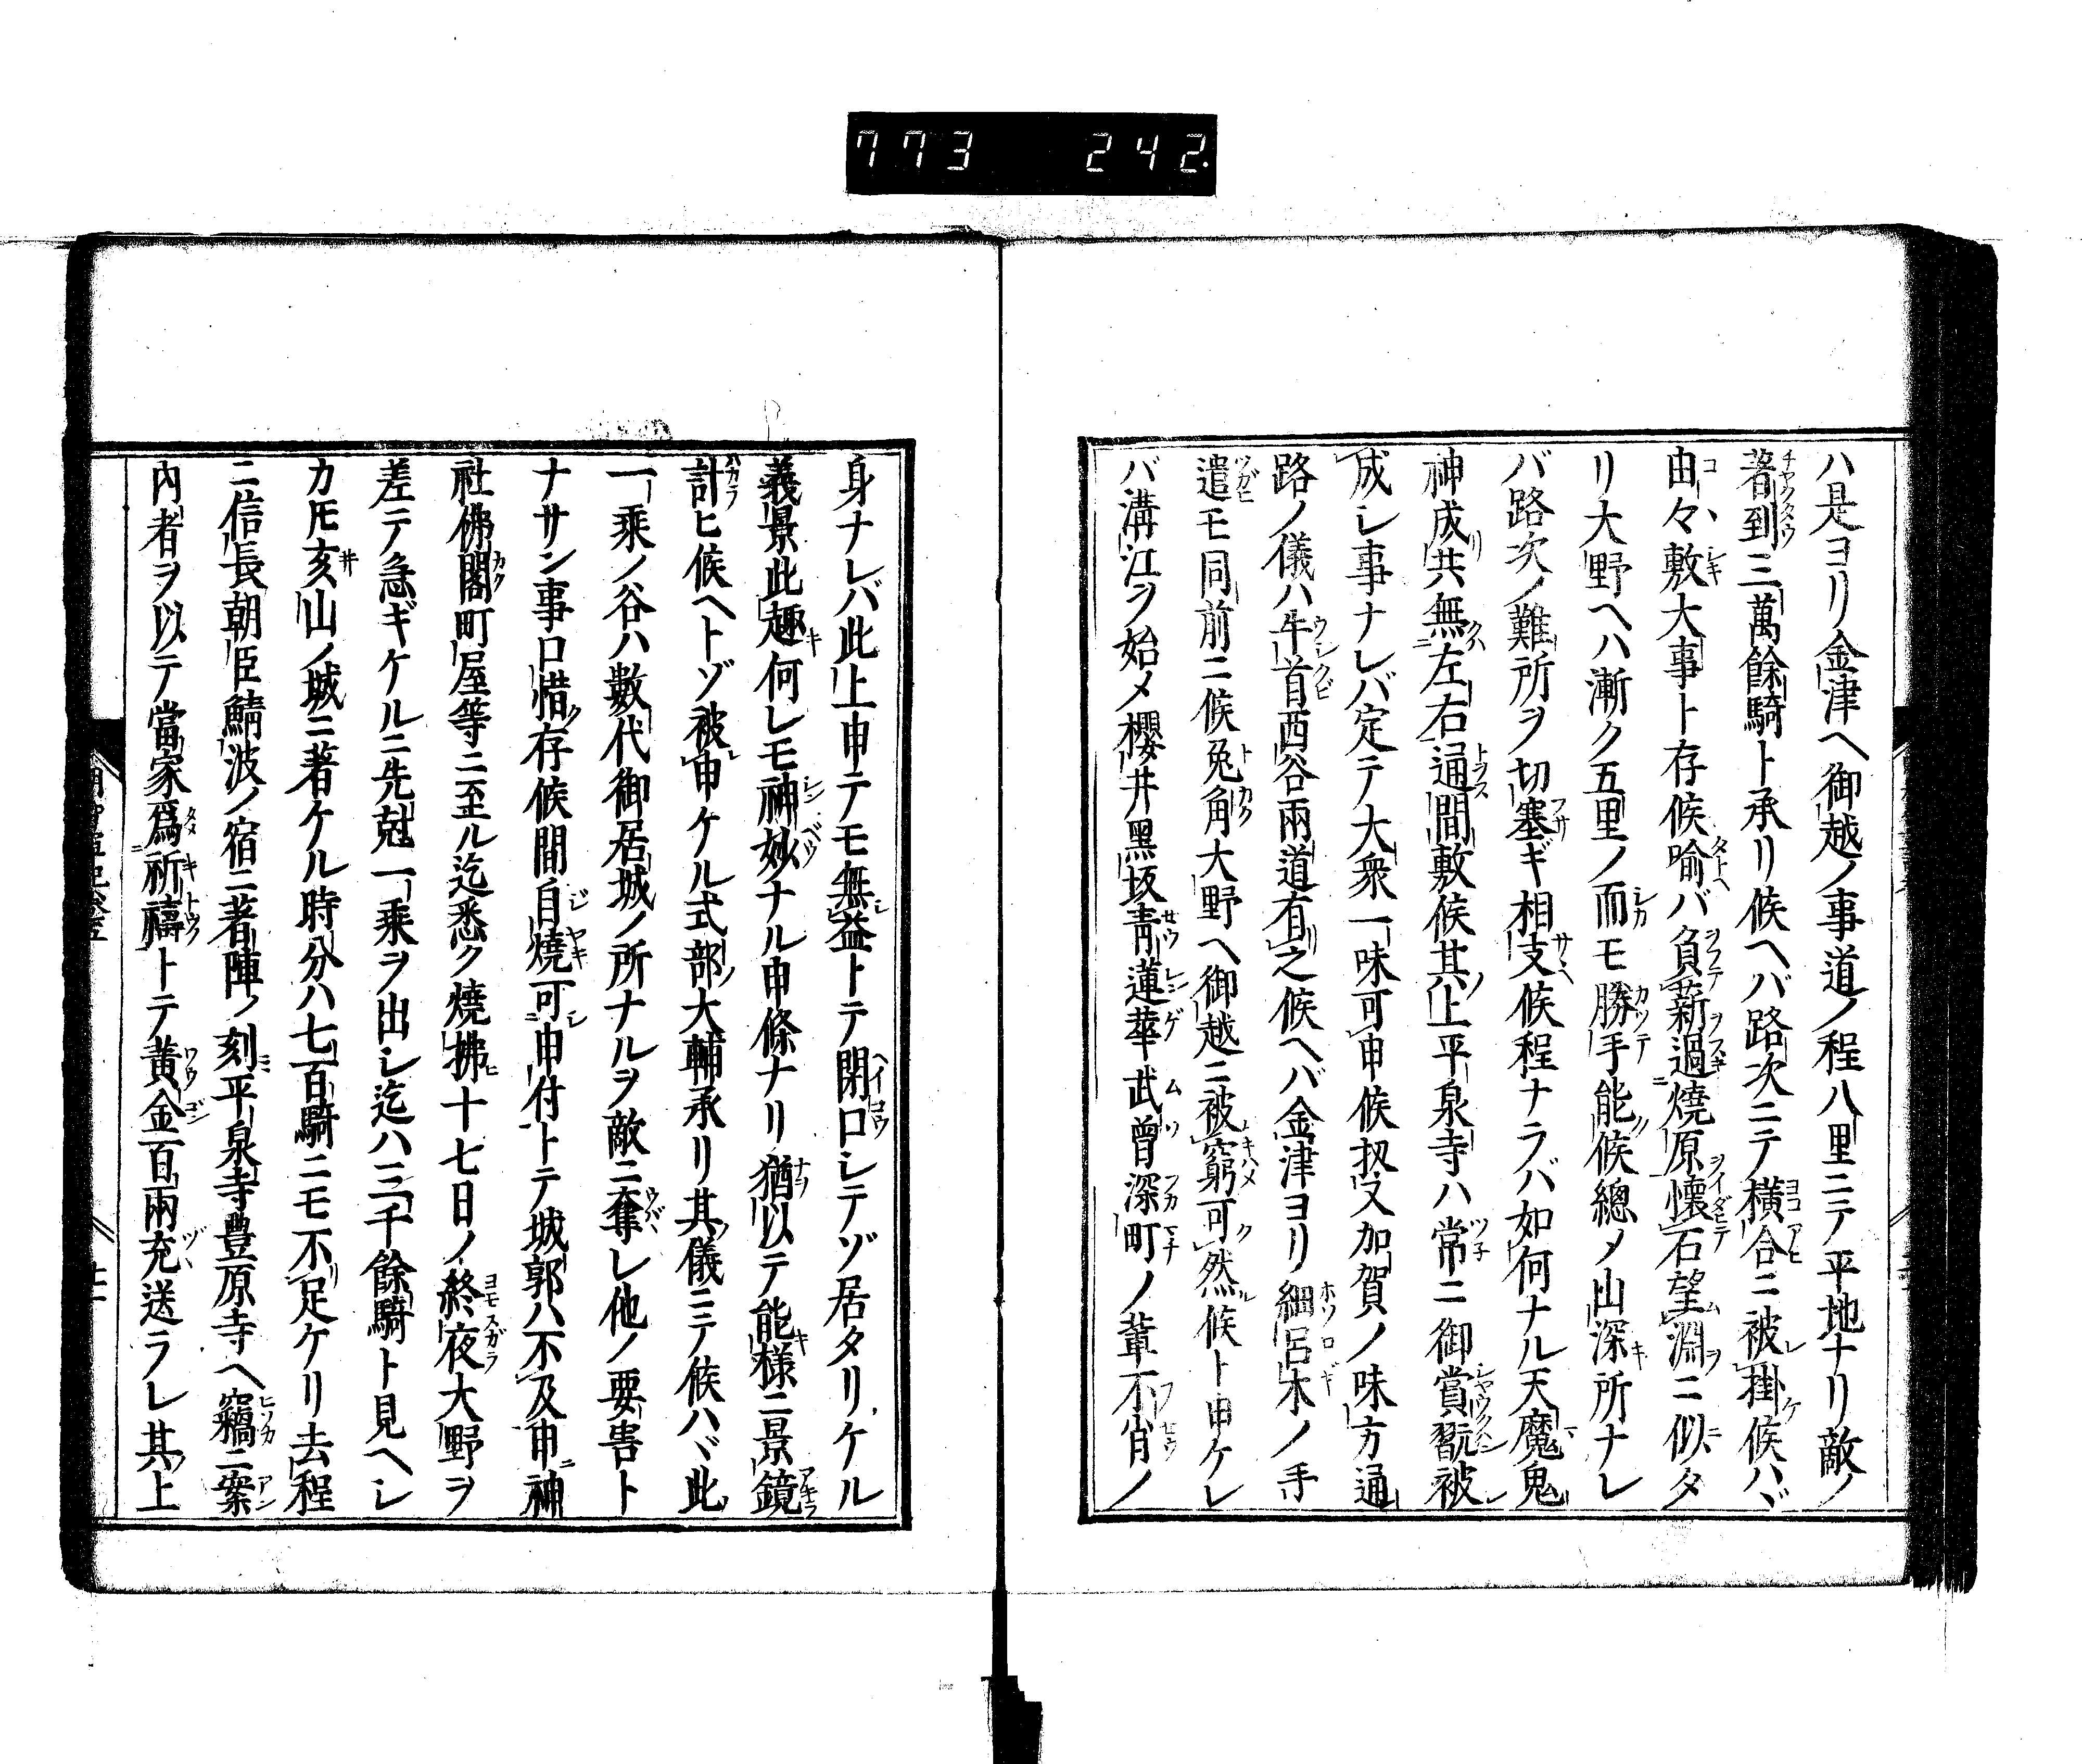 773 242
ハ是ヨリ金津ヘ御越ノ事道ノ程八里ニテ平地ナリ敵ノ
著到三萬餘騎ト承リ候ヘバ路次ニテ横合ニ被掛候ハヾ
由々敷大事ト存候喩バ負薪過燒原懷石望淵ニ似タ
リ大野ヘハ漸ク五里ノ而モ勝手能候總メ山深所ナレ
バ路次ノ難所ヲ切塞ギ相支候程ナラバ如何ナル天魔鬼
神成共無左右通間敷候其上平泉寺ハ常ニ御賞翫被
成レ事ナレバ定テ大衆一味可申候扨又加賀ノ味方通
路ノ儀ハ牛首西谷兩道有之候ヘバ金津ヨリ細呂木ノ手
遣モ同前ニ候兎角大野ヘ御越ニ被窮可然候ト申ケレ
バ溝江ヲ始メ櫻井黑坂青蓮華武曾深町ノ輩不肖ノ
身ナレバ此上申テモ無益トテ閉口シテゾ居タリケル
義景此趣何レモ神妙ナル申條ナリ猶以テ能樣ニ景鏡
計ヒ候ヘトゾ被申ケル式部大輔承リ其儀ニテ候ハヾ此
一乘ノ谷ハ數代御居城ノ所ナルヲ敵ニ奪レ他ノ要害ト
ナサン事口惜存候間自燒可申付トテ城郭ハ不及申神
社佛閣町屋等ニ至ル迄悉ク燒拂十七日ノ終夜大野ヲ
差テ急ギケルニ先剋一乘ヲ出シ迄ハ三千餘騎ト見ヘシ
カ𪜈亥山ノ城ニ著ケル時分ハ七百騎ニモ不足ケリ去程
ニ信長朝臣鯖波ノ宿ニ著陣ノ刻平泉寺豊原寺ヘ竊ニ案
內者ヲ以テ當家爲祈禱トテ黃金百兩充送ラレ其上